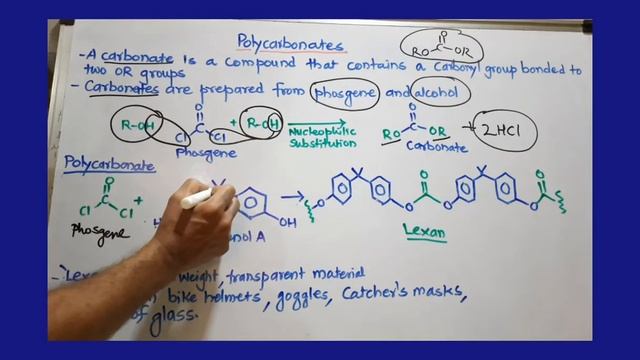 Polycarbonates
O
RO C OR
- A carbonate is a compound that contains a carbonyl group bonded to
two OR groups
- Carbonates are prepared from phosgene and alcohol
R-OH + Cl C Cl + R-OH
O
Phosgene
Nucleophilic
Substitution
O
RO C OR + 2HCl
Carbonate
Polycarbonate
O
Cl C Cl +
phosgene
H OH
nol A
O O O O
Lexan
weight, transparent material
bike helmets, goggles, Catcher's masks,
of glass.